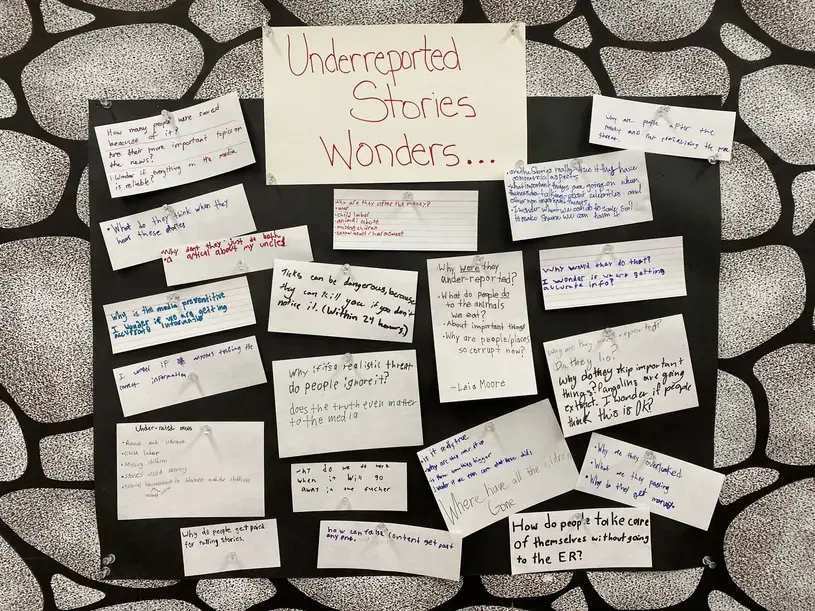 Underreported
Stories
Wonders...
How many people were saved
because of it?
Are their more important topics on
the news?
I Wonder if everything on the media
is reliable?
Why are people after the
money and not
• What do they think when they
hear these stories
Why don't they just do both
a artical about my uncles
Why are they after the money?
• war
• child labor
• animal abuse
• missing children
• sexual assult / harassment
what important things are going on when
I wonder what we can do to
Why would they do that?
I wonder if we are getting
accurate info?
Why is the media
I wonder if we are getting
Ticks can be dangerous, because
they can kill you if you don't
notice it. (Within 24 hours)
• Why were they
under-reported?
• What do people do
to the animals
we eat?
• About important things
• Why are people/places
so corrupt now?
- Laia Moore
I wonder if
correct information
Why if its a realistic threat
do people ignore it?
does the truth even matter
to the media
why are they under reported?
Do they lie?
Why do they skip important
things? Pangolins are going
extinct. I wonder if people
think this is OK?
Under-rated news
• Russia and Ukraine
• Child labor
• Missing children
• Stones used
• Sexual harassment in women and/or children
why do we do work
when it will go
away in the
is it really true
Where have all the
Gone
• Why are they overlooked
• What are they
• Why do they get
Why do people get paid
for telling stories.
how can false content get past
any one.
How do people take care
of themselves without going
to the ER?